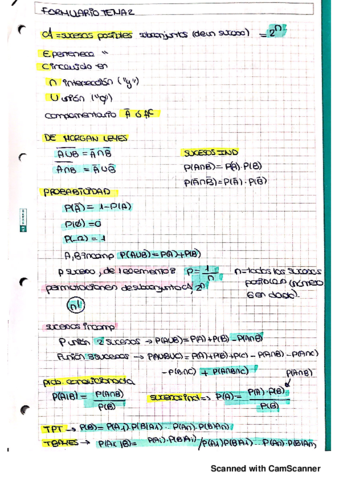 FORMULARIO TEMA 2
A = sucesos posibles subconjuntos (de un suceso) = 2ⁿ
E pertenece "
C incluido en
∩ intersección ("y")
U unión ("o")
complementario Ā ó Aᶜ
DE MORGAN LEYES
A∪B = Ā∩B̄
A∩B = Ā∪B̄
SUCESOS IND
P(A∩B) = P(A)·P(B)
P(Ā∩B̄) = P(Ā)·P(B̄)
PROBABILIDAD
P(Ā) = 1-P(A)
P(Ø) = 0
P(Ω) = 1
A, B incomp P(A∪B) = P(A)+P(B)
P suceso, de 1 elemento P = 1/n
n = todos los sucesos posibles (número 6 en dado).
permutaciones de subconjunto A, 2ⁿ
n!
sucesos incomp
P unión 2 sucesos → P(A∪B) = P(A)+P(B) - P(A∩B)
P unión 3 sucesos → P(A∪B∪C) = P(A)+P(B)+P(C) - P(A∩B) - P(A∩C)
- P(B∩C) + P(A∩B∩C)
prob. condicionada
P(A∩B)
P(A|B) = P(A∩B)/P(B)
sucesos ind => P(A) = P(A)·P(B)/P(B)
TPT → P(B) = P(A₁)·P(B|A₁)... P(Aₙ)·P(B|Aₙ)
TBAYES → P(Aᵢ|B) = P(Aᵢ)·P(B|Aᵢ) / P(A₁)P(B|A₁)... P(Aₙ)·P(B|Aₙ)
Scanned with CamScanner